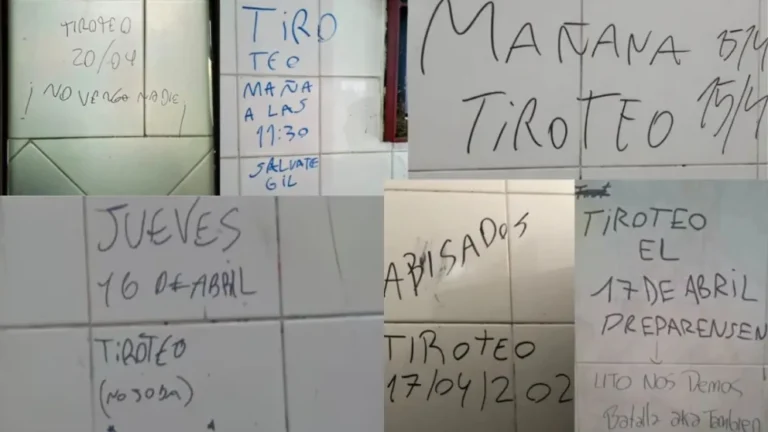 TIROTEO
20/04
¡ NO VENGA NADIE!
TIRO
TEO
MAÑA
A LAS
11:30
SALVATE
GIL
MAÑANA 15/4
TIROTEO 15/4
JUEVES
16 DE ABRIL
TIROTEO
(NO JODA)
ABISADOS
TIROTEO
17/04/202
TIROTEO
EL
17 DE ABRIL
PREPARENSEN
LITO NOS Demos
Batalla aka Tambien